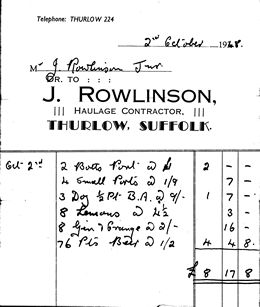 Telephone: THURLOW 224
2nd October, 1948.
Mr J. Rowlinson Jnr
DR. TO : : :
J. ROWLINSON,
||| HAULAGE CONTRACTOR, |||
THURLOW, SUFFOLK.
Oct 2nd 2 Botts Port @ £ 2 - -
4 Small Ports @ 1/9 7 -
3 Doz ½ Pt B.A. @ 9/- 1 7 -
8 Lemons @ 4½ 3 -
8 Gin & Orange @ 2/- 16 -
76 Pts Beer @ 1/2 4 4 8.
£ 8 17 8